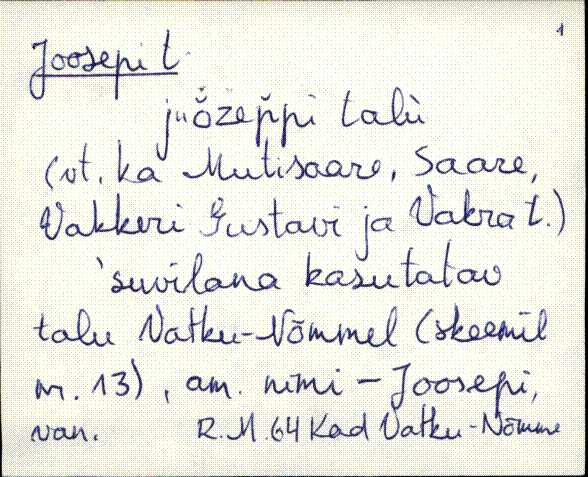 1
Joosepi t.
juǒžep̆pi talù
(vt. ka Mutisaare, Saare,
Vakkeri Gustavi ja Vakra t.)
`suvilana kasutatav
talu Vatku-Nõmmel (skeemil
nr. 13), am. nimi - Joosepi,
van. R.M.64 Kad Vatku-Nõmme